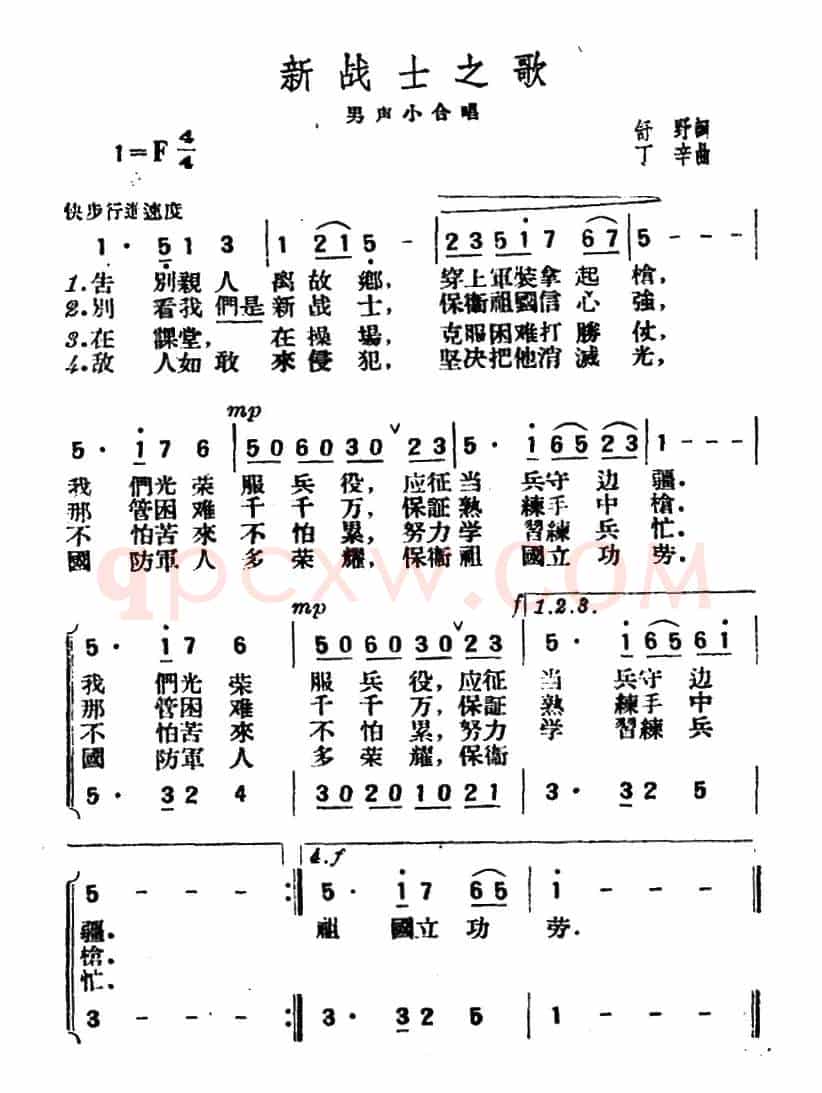 新战士之歌
男声小合唱
1=F 4/4
舒 野詞
丁 辛曲
快步行進速度
1· 5 1 3 | 1 2 1 5 - | 2 3 5 1 7 6 7 | 5 - - - |
1.告 別親人 离故鄉, 穿上軍裝拿起槍,
2.別 看我們是新战士, 保衞祖國信心強,
3.在 課堂, 在操場, 克服困难打勝仗,
4.敌 人如敢來侵犯, 坚决把他消滅光,
mp
5· 1 7 6 | 5 0 6 0 3 0 ∨ 2 3 | 5· 1 6 5 2 3 | 1 - - - |
我 們光荣服兵役, 应征当 兵守边疆.
那 管困难千千万, 保証熟 練手中槍.
不 怕苦來不怕累, 努力学 習練兵忙.
國 防軍人多荣耀, 保衞祖 國立功劳.
mp f 1.2.3.
5· 1 7 6 | 5 0 6 0 3 0 ∨ 2 3 | 5· 1 6 5 6 1 |
我 們光荣 服兵役, 应征 当 兵守边
那 管困难 千千万, 保証 熟 練手中
不 怕苦來 不怕累, 努力 学 習練兵
國 防軍人 多荣耀, 保衞
5· 3 2 4 | 3 0 2 0 1 0 2 1 | 3· 3 2 5 |
4.f
5 - - - :‖ 5· 1 7 6 5 | 1 - - - ‖
疆. 祖 國立功 劳.
槍.
忙.
3 - - - :‖ 3· 3 2 5 | 1 - - - ‖
qpcxw.com